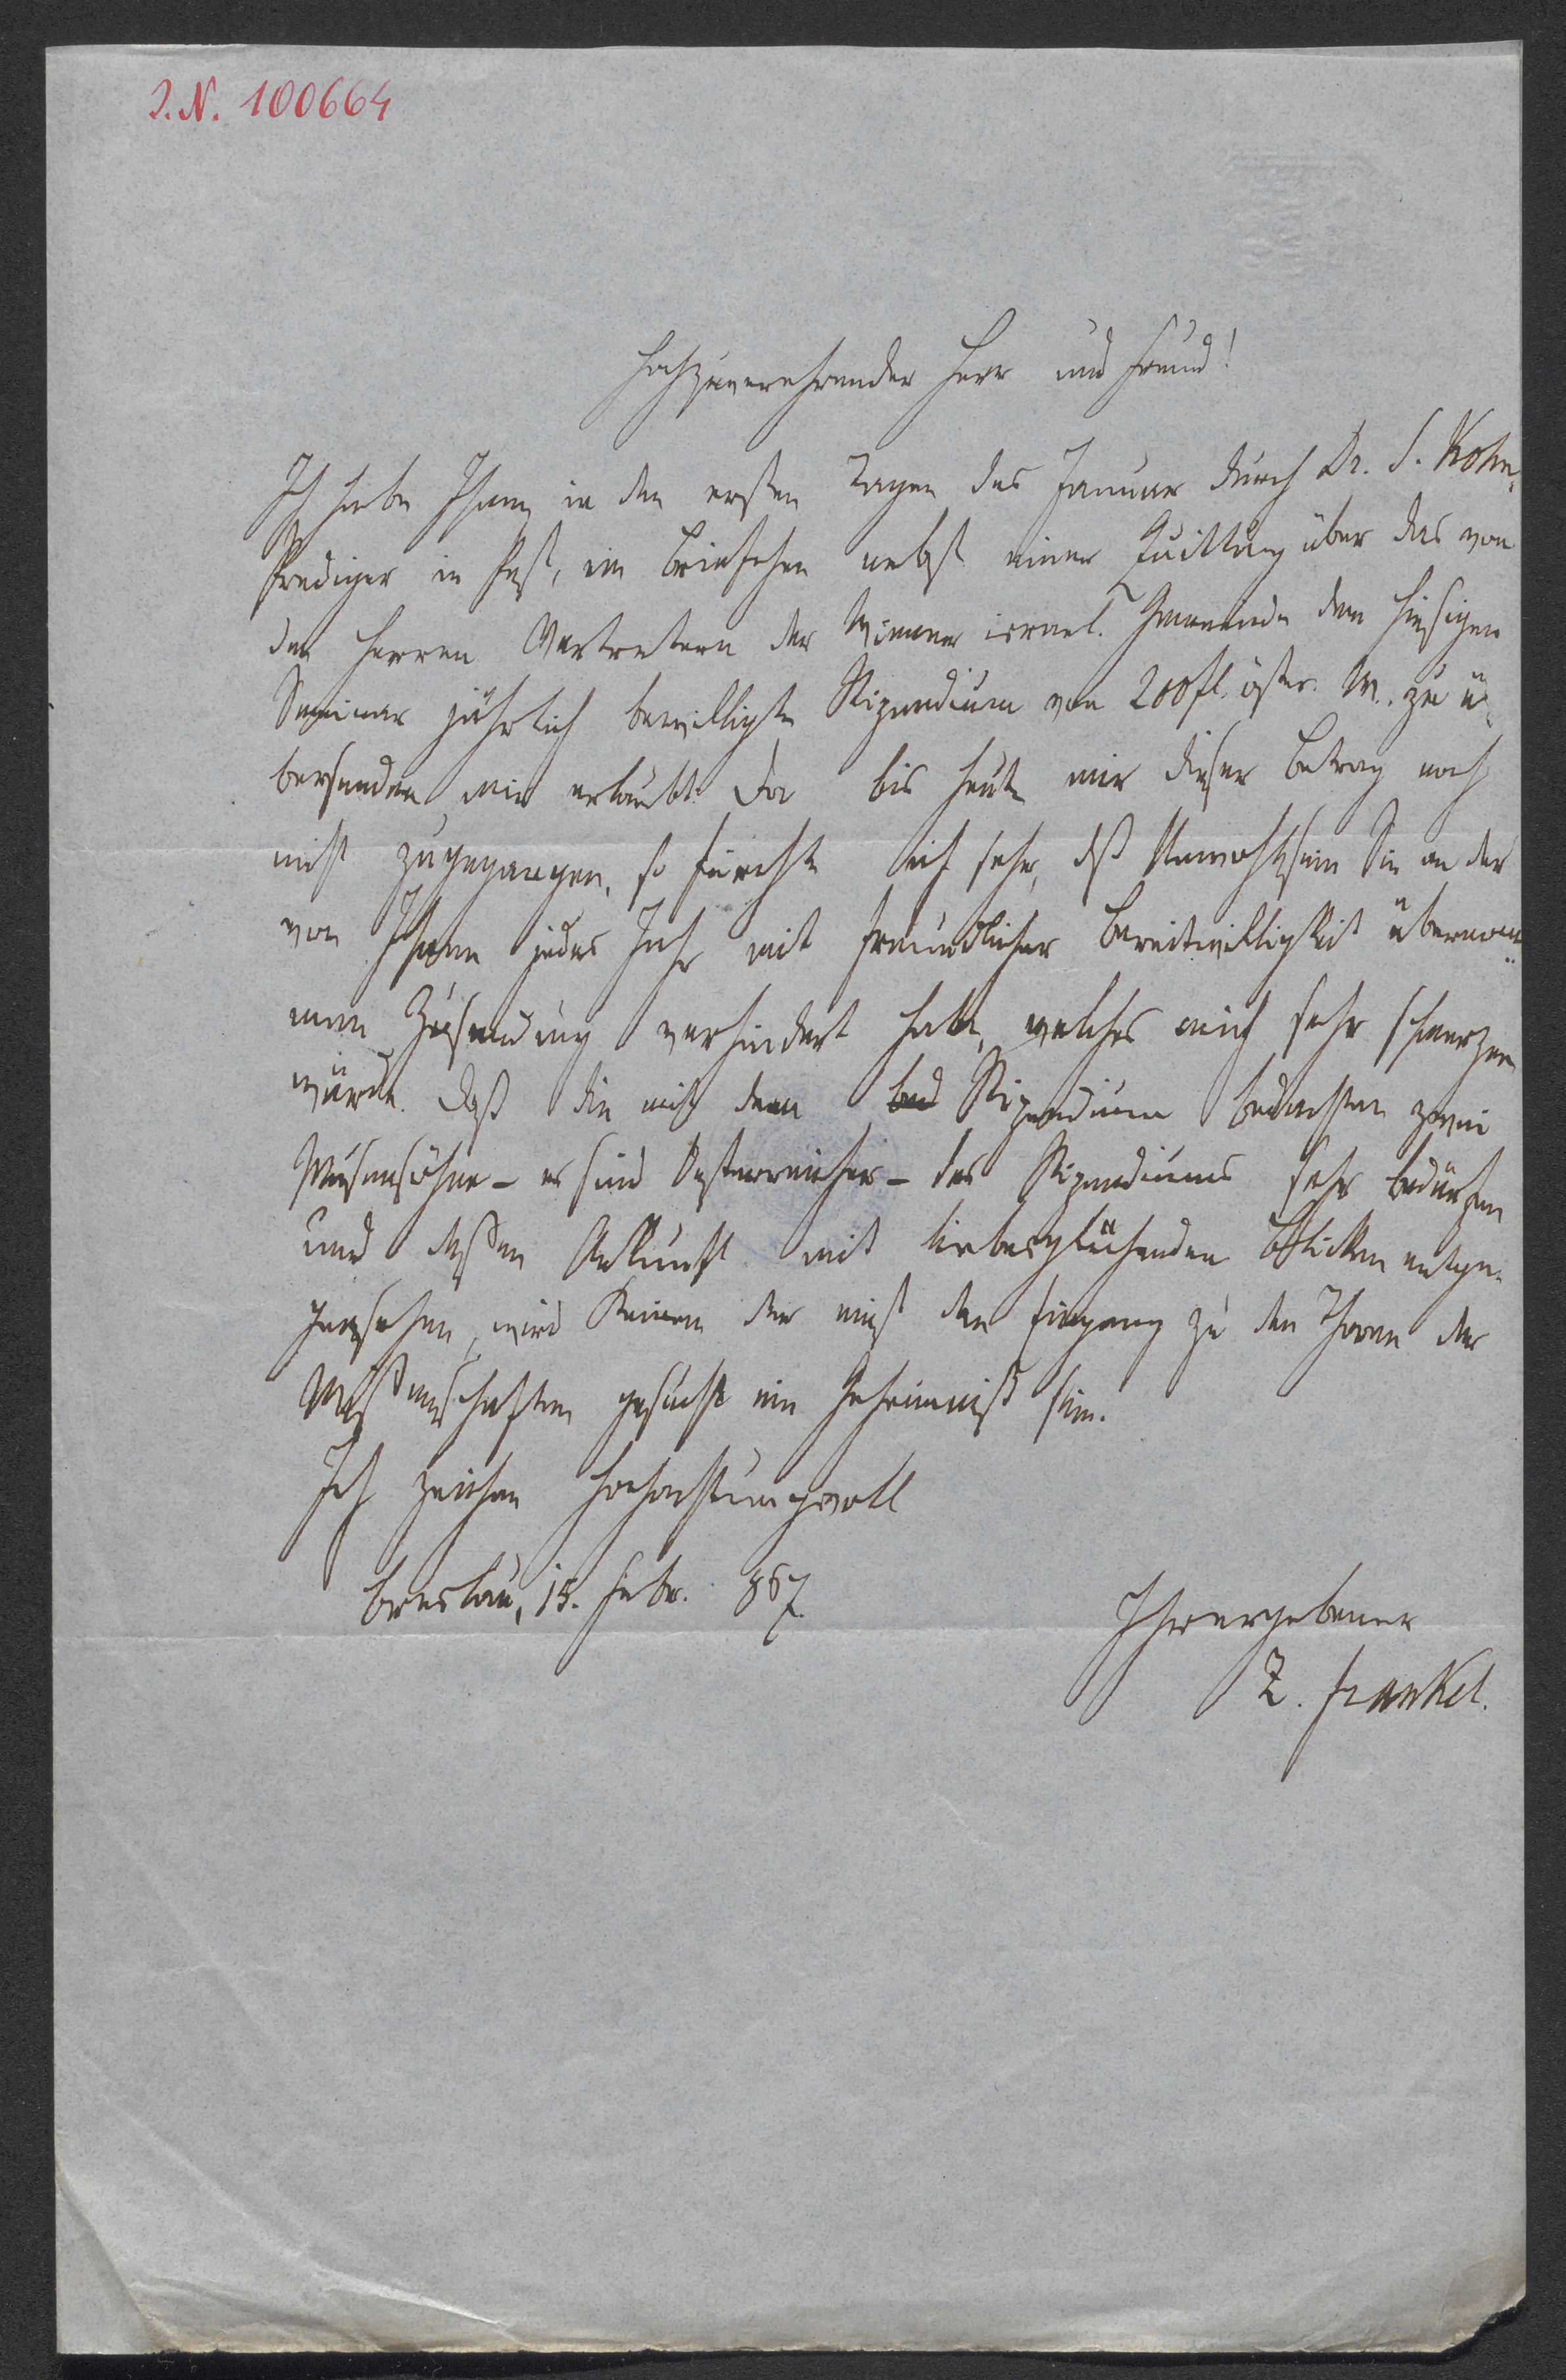 I.N. 100664
Hochzuverehrender Herr und Freund!
Ich habe Ihnen in den ersten Tagen des Januar durch Dr. S. Kohn,
Prediger in Pest, ein Briefchen nebst einer Quittung über das von
den Herren Vertretern der Wiener israel. Gemeinde dem hiesigen
Seminar jährlich bewilligte Stipendium von 200 fl. östr. W. zu ü-
bersenden mir erlaubt. Da bis heute mir dieser Betrag noch
nicht zugegangen, so fürchte ich sehr, dß Unwohlsein Sie an der
von Ihnen jedes Jahr mit freundlicher Bereitwilligkeit übernom-
menen Zusendung verhindert habe, welches mich sehr schmerzen
würde. Daß die mit dem bed Stipendium bedachten zwei
Musensöhne – es sind Oesterreicher – des Stipendiums sehr bedürfen
und dessen Ankunft mit liebesglühenden Blicken entge-
gensehen, wird Keinem der einst den Eingang zu den Thoren der
Wissenschaften gesucht ein Geheimniß sein.
Ich zeichne hochachtungsvoll
Breslau, 15. Febr. 867.
Ihr ergebener
Z. Frankel.